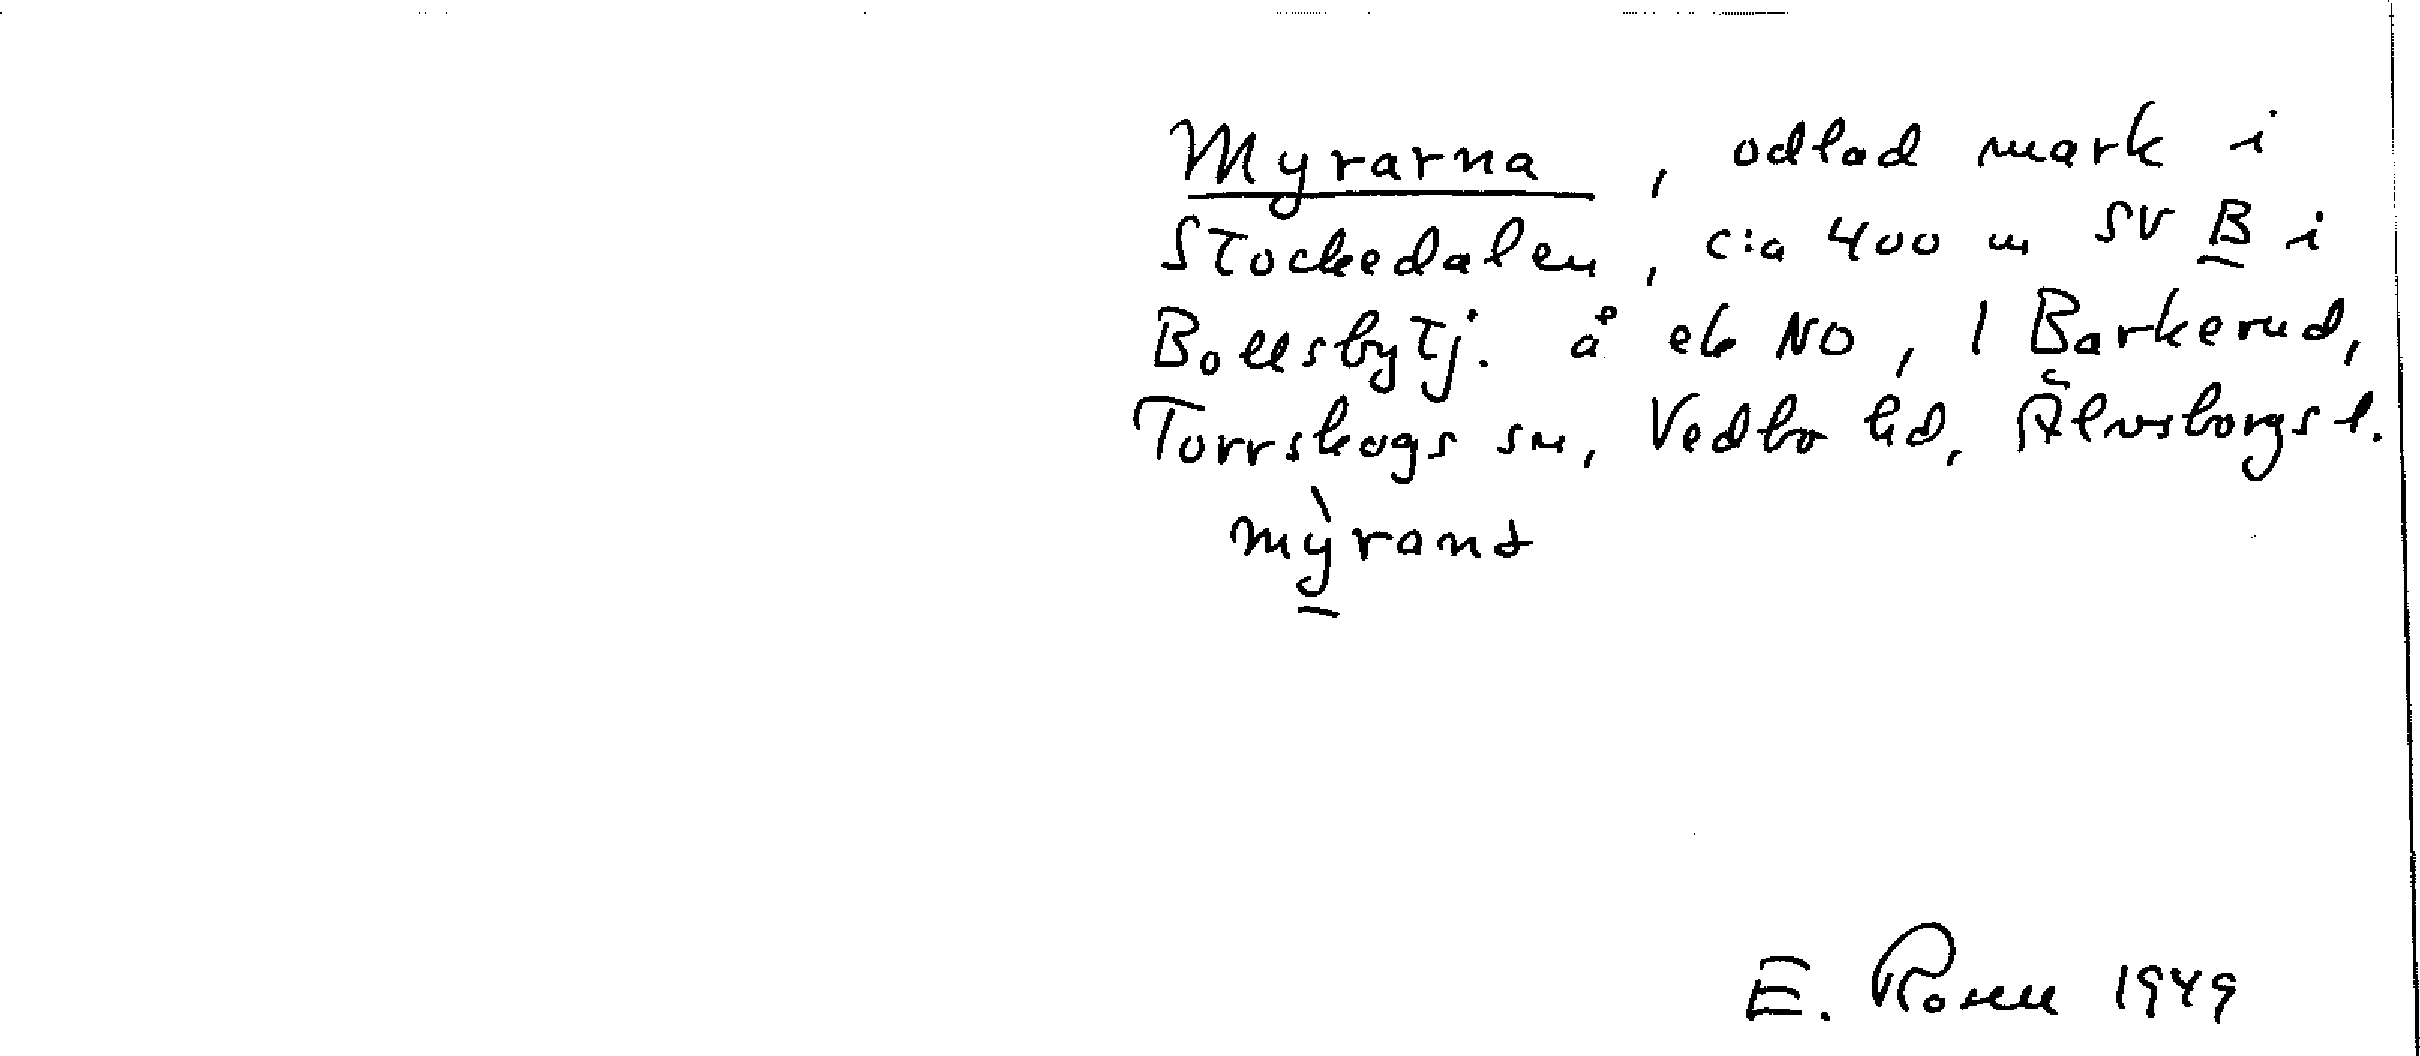 Myrarna, odlad mark i
Stockedalen, c:a 400 m SV B i
Bollsbytj. å ek NO, 1 Barkerud,
Torrskogs sn, Vedbo hd, Älvsborgs l.
mỳrana
E. Rosell 1949